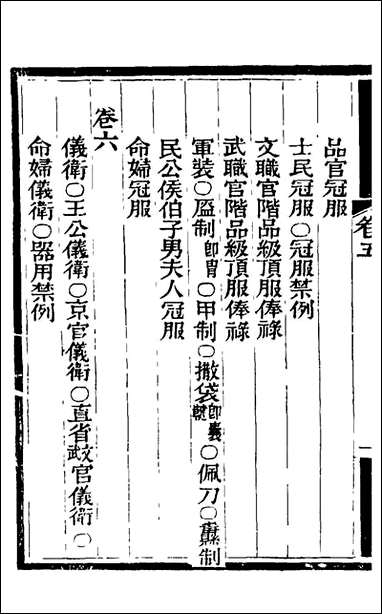 品官冠服
士民冠服○冠服禁例
文職官階品級頂服俸祿
武職官階品級頂服俸祿
軍裝○盔制即冑○甲制○撒袋即櫜鞬○佩刀○纛制
民公侯伯子男夫人冠服
命婦冠服
卷六
儀衛○王公儀衛○京官儀衛○直省文武官儀衛○
命婦儀衛○器用禁例
卷五
一